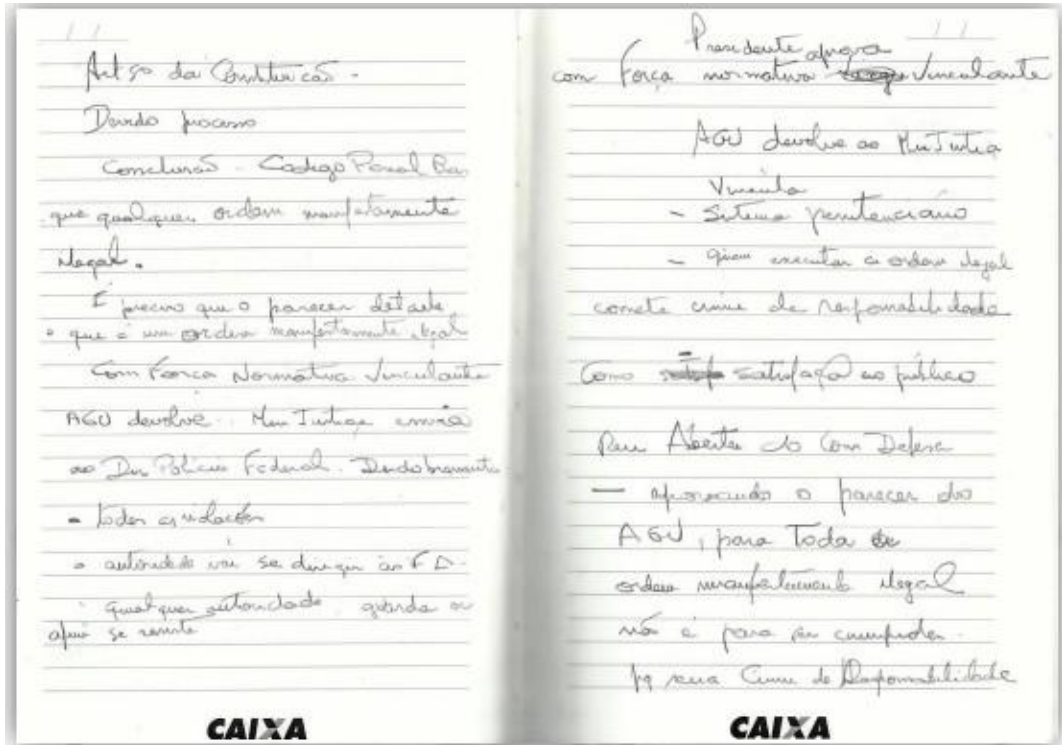 Artigo da Constituição -
Devido processo
Conclusão - Codigo Penal
que qualquer ordem manifestamente
ilegal.
É preciso que o parecer detalhe
o que é um ordem manifestamente ilegal
Com Força Normativa Vinculante
AGU devolve. Min Justiça envia
ao Dir Policia Federal. Desdobramento
- todas as violações
a autoridade vai se dirigir às FA-
qualquer autoridade, guarda ou
se remete
CAIXA
Presidente aprova
com Força normativa Vinculante
AGU devolve ao Min Justiça
Vincula
- Sistema penitenciário
- quem executar a ordem ilegal
comete crime de responsabilidade
Como satisfação ao público
Reu Aberta do Com Defesa
— aprovando o parecer do
AGU, para Toda
ordem manifestamente ilegal
não é para ser cumprida.
Pq seria Crime de Responsabilidade
CAIXA